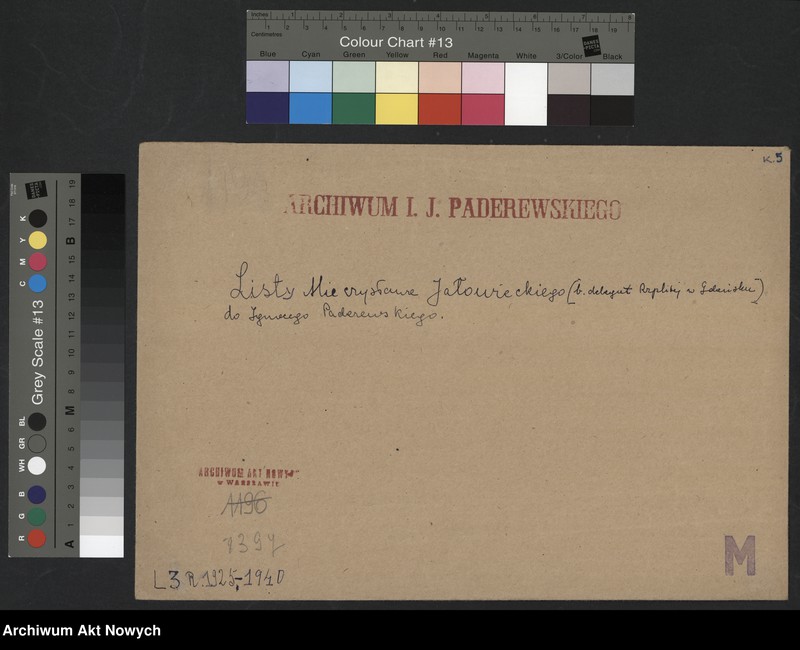 Inches 1 2 3 4 5 6 7 8
Centimetres 1 2 3 4 5 6 7 8 9 10 11 12 13 14 15 16 17 18 19
Colour Chart #13
Blue Cyan Green Yellow Red Magenta White 3/Color Black
DANES PICTA
Grey Scale #13
R G B WH GR BL
C M Y K
A 1 2 3 4 5 6 M 8 9 10 11 12 13 14 15 B 17 18 19
K.5
ARCHIWUM I. J. PADEREWSKIEGO
Listy Mieczysława Jałowieckiego (b. delegat Rzplitej w Gdańsku)
do Ignacego Paderewskiego.
ARCHIWUM AKT NOWYCH
w WARSZAWIE
1196
L3 R.1925-1940
M
Archiwum Akt Nowych